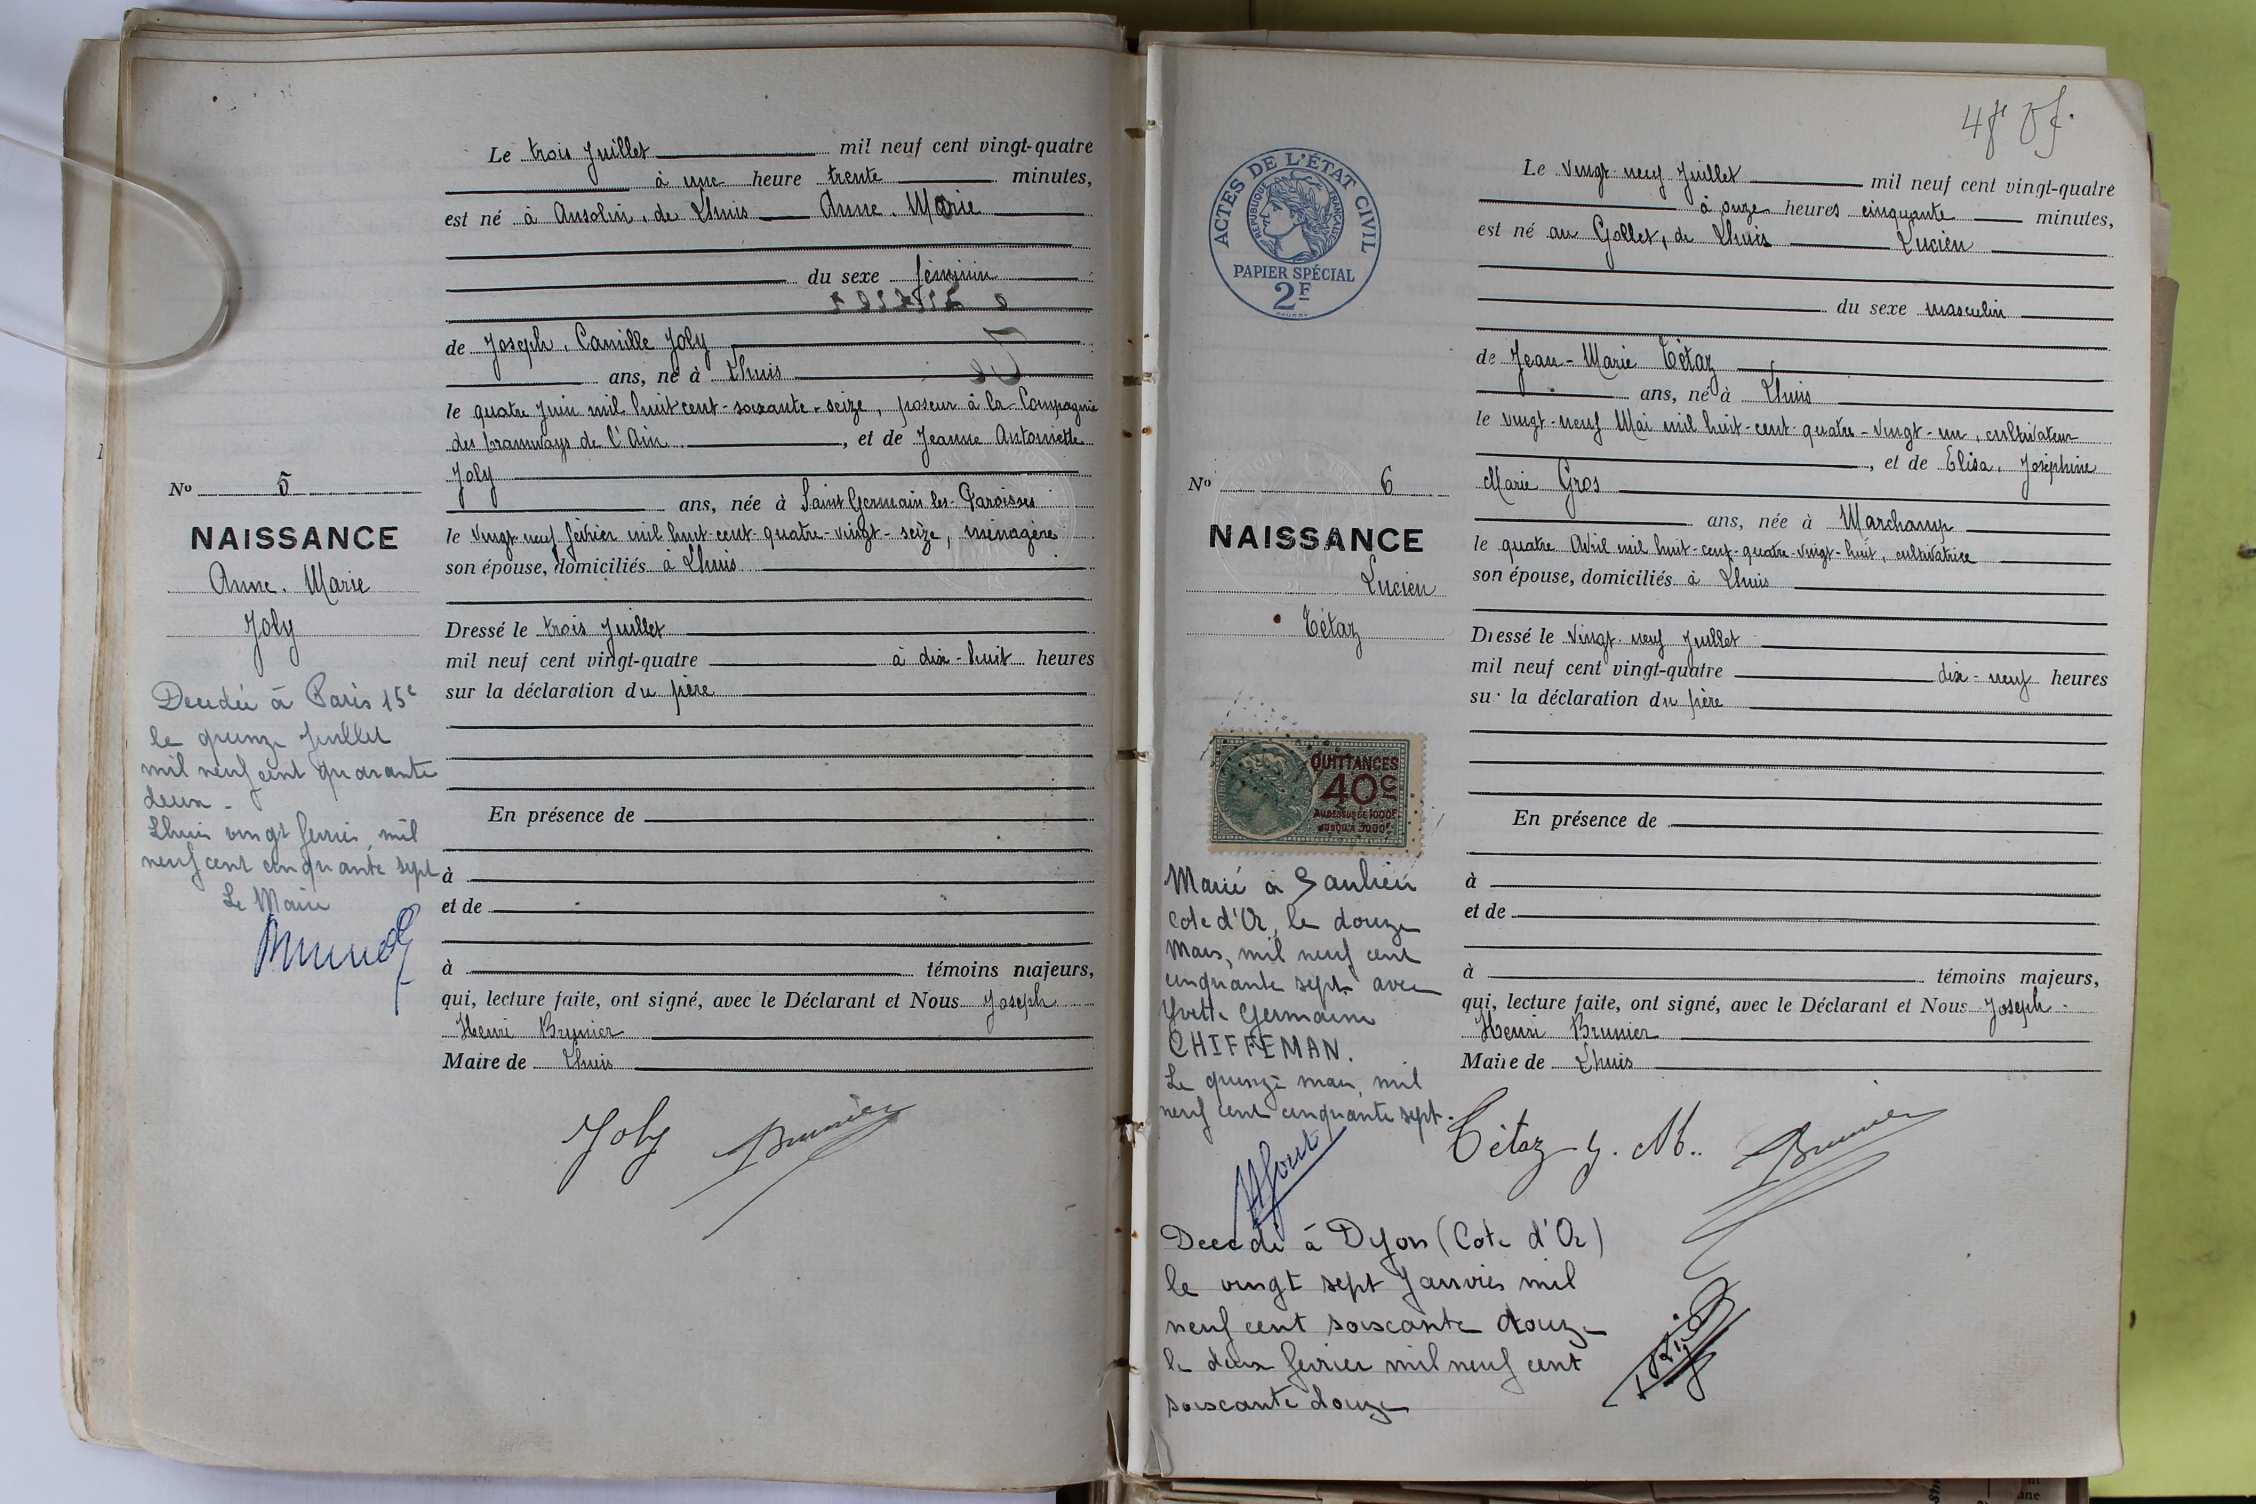 Le trois Juillet mil neuf cent vingt-quatre
à une heure trente minutes,
est né à Ansolin, de Lhuis Anne. Marie
du sexe féminin
de Joseph. Camille Joly
ans, né à Lhuis
le quatre Juin mil huit cent-soixante-seize, poseur à la Compagnie
des tramways de l'Ain, et de Jeanne Antoinette
Joly
ans, née à Saint Germain les-Paroisses
le vingt neuf février mil huit-cent-quatre-vingt-seize, ménagère
son épouse, domiciliés à Lhuis
Dressé le trois Juillet
mil neuf cent vingt-quatre à dix-huit heures
sur la déclaration du père
En présence de
à
et de
à témoins majeurs,
qui, lecture faite, ont signé, avec le Déclarant et Nous Joseph
Henri Brunier
Maire de Lhuis
Joly Brunier
No 5
NAISSANCE
Anne. Marie
Joly
Decedée à Paris 15e
le quinze juillet
mil neuf cent quarante
deux -
Lhuis vingt fevrier, mil
neuf cent cinquante sept
Le Maire
48
ACTES DE L'ÉTAT CIVIL
RÉPUBLIQUE FRANÇAISE
PAPIER SPÉCIAL
2F
Le vingt-neuf Juillet mil neuf cent vingt-quatre
à onze heures cinquante minutes,
est né au Gollet, de Lhuis Lucien
du sexe masculin
de Jean-Marie Tétaz
ans, né à Lhuis
le vingt-neuf Mai mil huit-cent-quatre-vingt-un, cultivateur
, et de Elisa. Joséphine
Marie Gros
ans, née à Marchamp
le quatre Avril mil huit-cent-quatre-vingt-huit, cultivatrice
son épouse, domiciliés à Lhuis
Dressé le vingt-neuf Juillet
mil neuf cent vingt-quatre dix-neuf heures
sur la déclaration du père
En présence de
à
et de
à témoins majeurs,
qui, lecture faite, ont signé, avec le Déclarant et Nous Joseph
Henri Brunier
Maire de Lhuis
Tétaz J. M. Brunier
No 6
NAISSANCE
Lucien
Tétaz
QUITTANCES
40c
AU DESSUS DE 1000F
JUSQU'A 3000F
Marié à Saulieu
Cote d'Or, le douze
Mars, mil neuf cent
cinquante sept avec
Yvette Germaine
CHIFFEMAN.
Le quinze mars, mil
neuf cent cinquante sept.
Decedé à Dijon (Cote d'Or)
le vingt sept Janvier mil
neuf cent soixante douze
le deux fevrier mil neuf cent
soixante douze